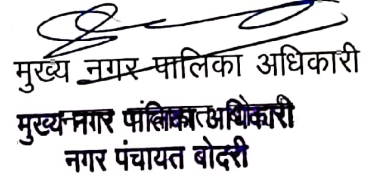 मुख्य नगर पालिका अधिकारी
मुख्य नगर पालिका अधिकारी
नगर पंचायत बोदरी